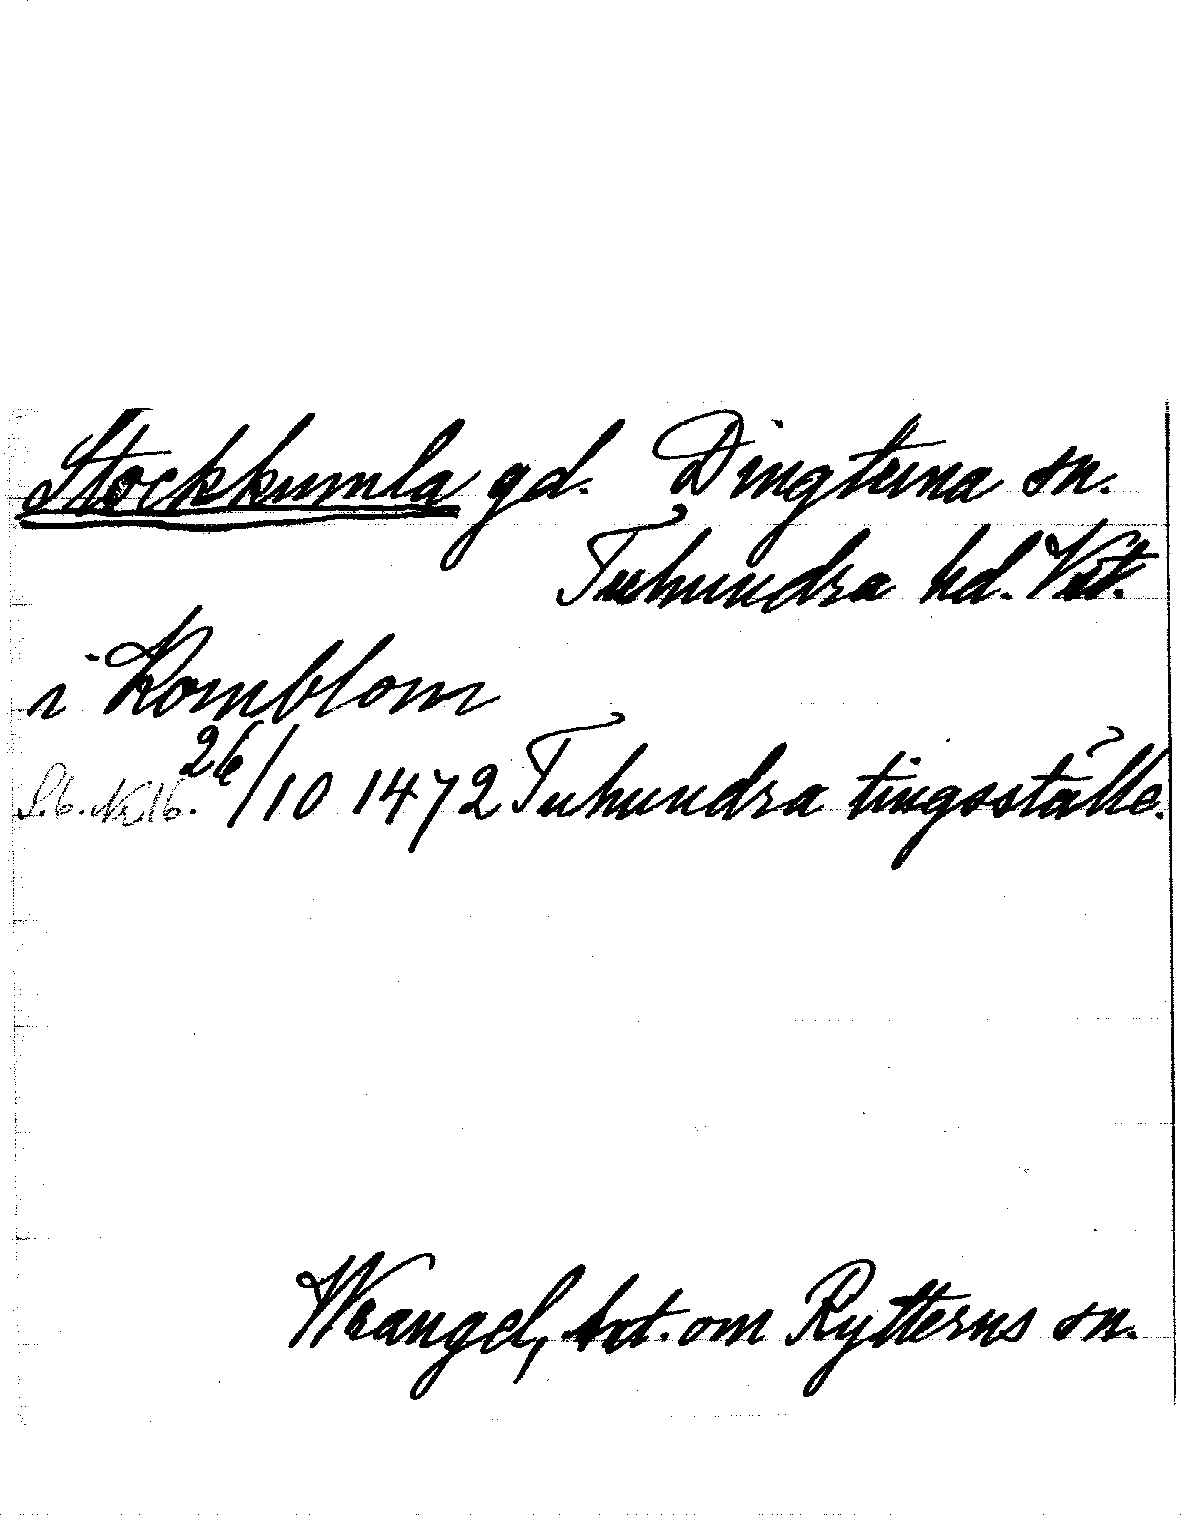 Stockkumla gd. Dingtuna sn.
Tuhundra hd. Vst.
i Komblom
S. 6. Nr 16. 26/10 1472 Tuhundra tingsställe.
Wrangel, Ant. om Rytterns sn.